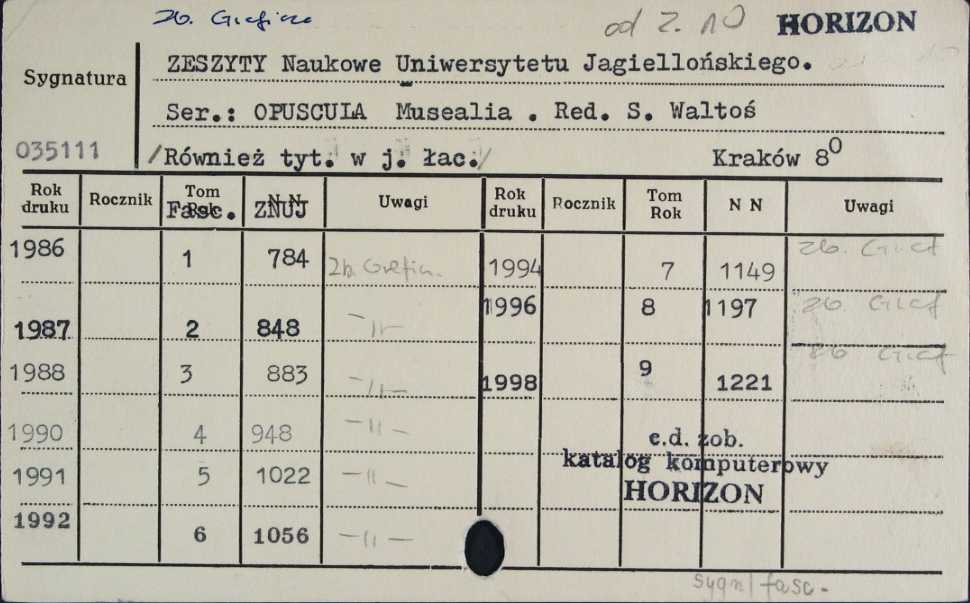 Zb. Graficzne od z. 10 HORIZON
Sygnatura
ZESZYTY Naukowe Uniwersytetu Jagiellońskiego.
Ser.: OPUSCULA Musealia . Red. S. Waltoś
035111 /Również tyt. w j. łac./ Kraków 8⁰
Rok druku Rocznik Tom Rok Fasc. N N ZNUJ Uwagi Rok druku Rocznik Tom Rok N N Uwagi
1986 1 784 Zb. Graficzn. 1994 7 1149 Zb. Graf
1987 2 848 – 11 – 1996 8 1197 Zb. Graf
1988 3 883 – 11 – 1998 9 1221 Zb. Graf
1990 4 948 – 11 –
1991 5 1022 – 11 –
1992 6 1056 – 11 –
c.d. zob.
katalog komputerowy
HORIZON
sygn/fasc.